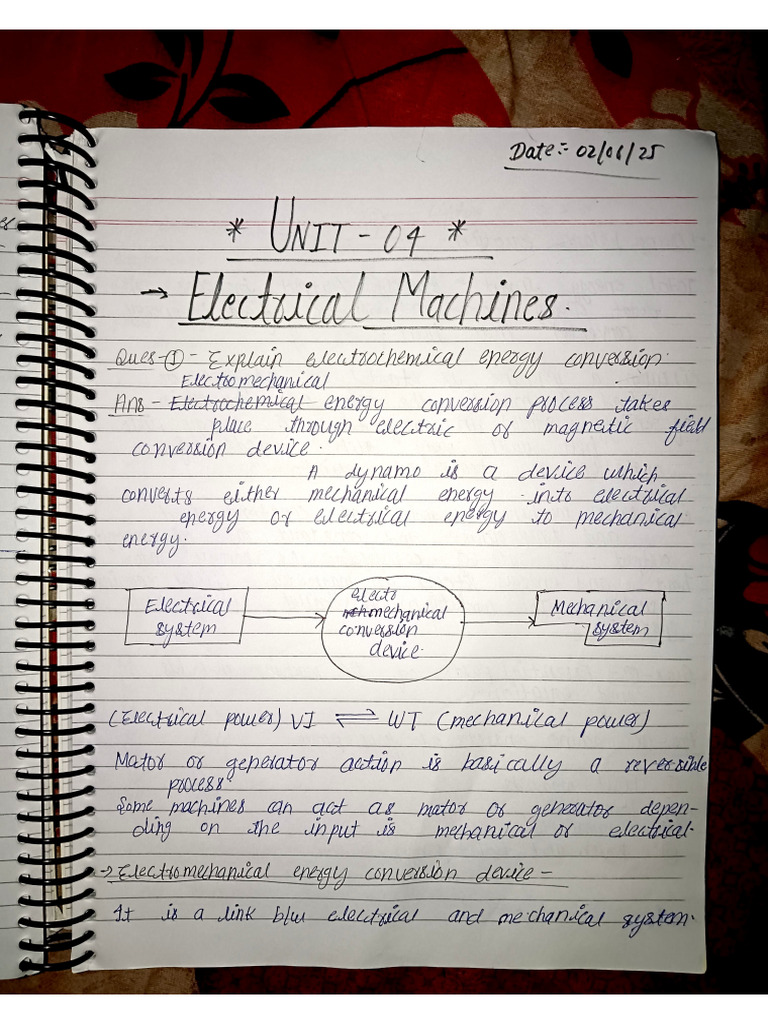 Date:- 02/06/25
* UNIT - 04 *
→ Electrical Machines.
Ques-① - Explain electrochemical energy conversion.
Electromechanical
Ans - Electrochemical energy conversion process takes
place through electric or magnetic field
conversion device.
A dynamo is a device which
converts either mechanical energy into electrical
energy or electrical energy to mechanical
energy.
Electrical
system
electro
mechanical
conversion
device.
Mechanical
system
(Electrical power) VI ⇌ WT (mechanical power)
Mator or generator action is basically a reversible
process.
Some machines can act as mator or generator depen-
ding on the input is mechanical or electrical.
→ Electromechanical energy conversion device -
It is a link b/w electrical and mechanical system.